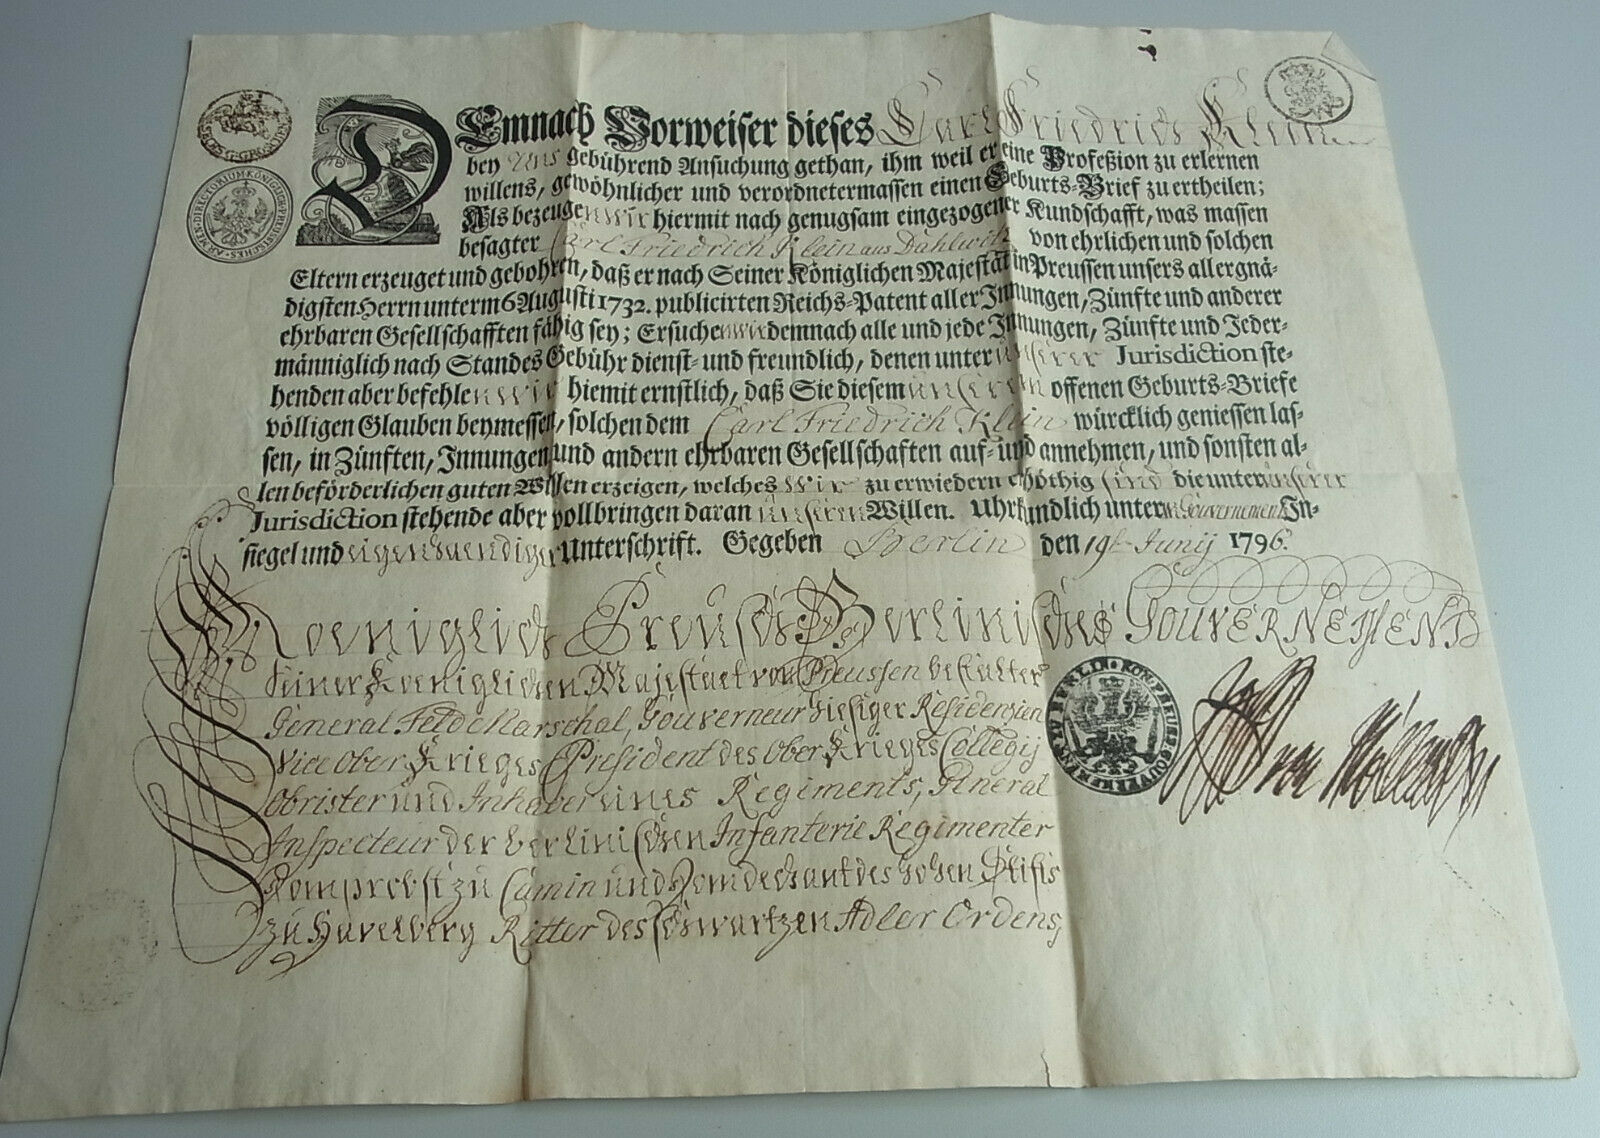 SECHS G. GROSCHEN
ARMEN-DIRECTORIUM KÖNIGL. CHURMÄRKISCHES
DEmnach Vorweiser dieses Carl Friedrich Klein
bey Uns gebührend Ansuchung gethan, ihm weil er eine Profeßion zu erlernen
willens, gewöhnlicher und verordnetermassen einen Geburts-Brief zu ertheilen;
Als bezeugen wir hiermit nach genugsam eingezogener Kundschafft, was massen
besagter Carl Friedrich Klein aus Dahlwitz von ehrlichen und solchen
Eltern erzeuget und gebohren, daß er nach Seiner Königlichen Majestät in Preussen unsers allergnä-
digsten Herrn unterm 6 Augusti 1732. publicirten Reichs-Patent aller Innungen, Zünfte und anderer
ehrbaren Gesellschafften fähig sey; Ersuchen wir demnach alle und jede Innungen, Zünfte und Jeder-
männiglich nach Standes Gebühr dienst- und freundlich, denen unter unserer Jurisdiction ste-
henden aber befehlen wir hiemit ernstlich, daß Sie diesem unserem offenen Geburts-Briefe
völligen Glauben beymessen, solchen dem Carl Friedrich Klein würcklich geniessen las-
sen, in Zünften, Innungen und andern ehrbaren Gesellschaften auf- und annehmen, und sonsten al-
len beförderlichen guten Willen erzeigen, welches wir zu erwiedern erböthig sind die unter unserer
Jurisdiction stehende aber vollbringen daran unsern Willen. Uhrkundlich unterm Gouvernement In-
siegel und eigenhaendiger Unterschrift. Gegeben Berlin den 19t Junij 1796.
Koeniglich Preusch Berlinisches GOUVERNEMENT
Seiner Koeniglichen Majestaet von Preussen bestalter
General Feld Marschal, Gouverneur hiesiger Residenzien
Vice Ober Krieges President des Ober Krieges Collegij
Obrister und Inhaber eines Regiments, General
Inspecteur der berlinischen Infanterie Regimenter
Domprobst zu Camin und Domdechant des hohen Stifts
zu Havelberg Ritter des schwartzen Adler Ordens,
KÖN. PREUS. GOUVERNEMENT ZU BERLIN
von Möllendorf